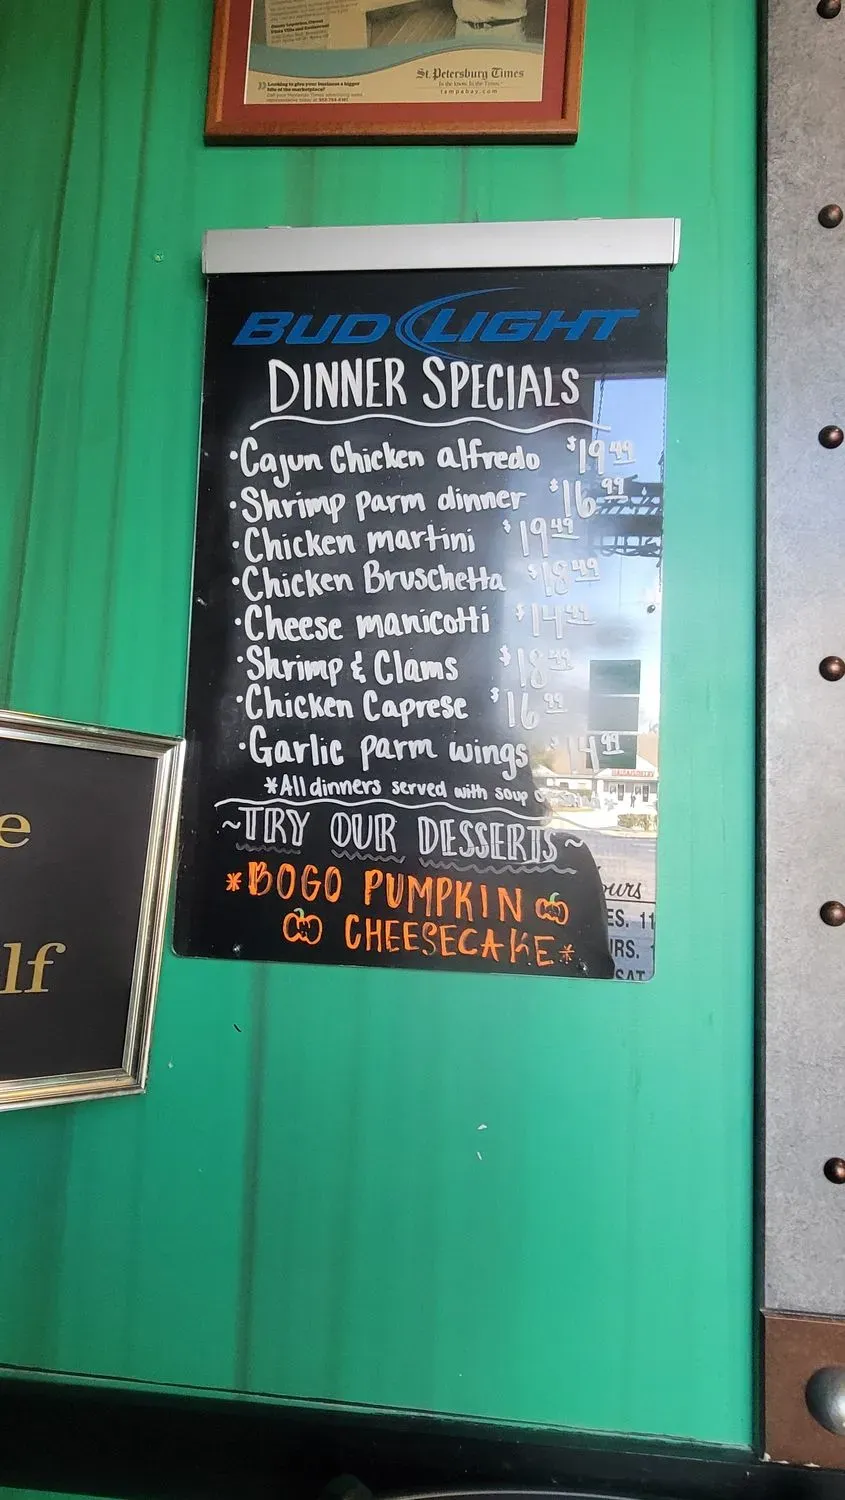 Looking to give your business a bigger
St. Petersburg Times
In the know. In the Times.
tampabay.com
BUD LIGHT
DINNER SPECIALS
•Cajun Chicken alfredo $19.49
•Shrimp parm dinner $16.99
•Chicken martini $19.49
•Chicken Bruschetta $18.49
•Cheese manicotti $14.99
•Shrimp & Clams $18.49
•Chicken Caprese $16.99
•Garlic parm wings $14.99
*All dinners served with soup
~TRY OUR DESSERTS~
*BOGO PUMPKIN
CHEESECAKE*
e
lf
ours
ES. 11
RS.
SAT